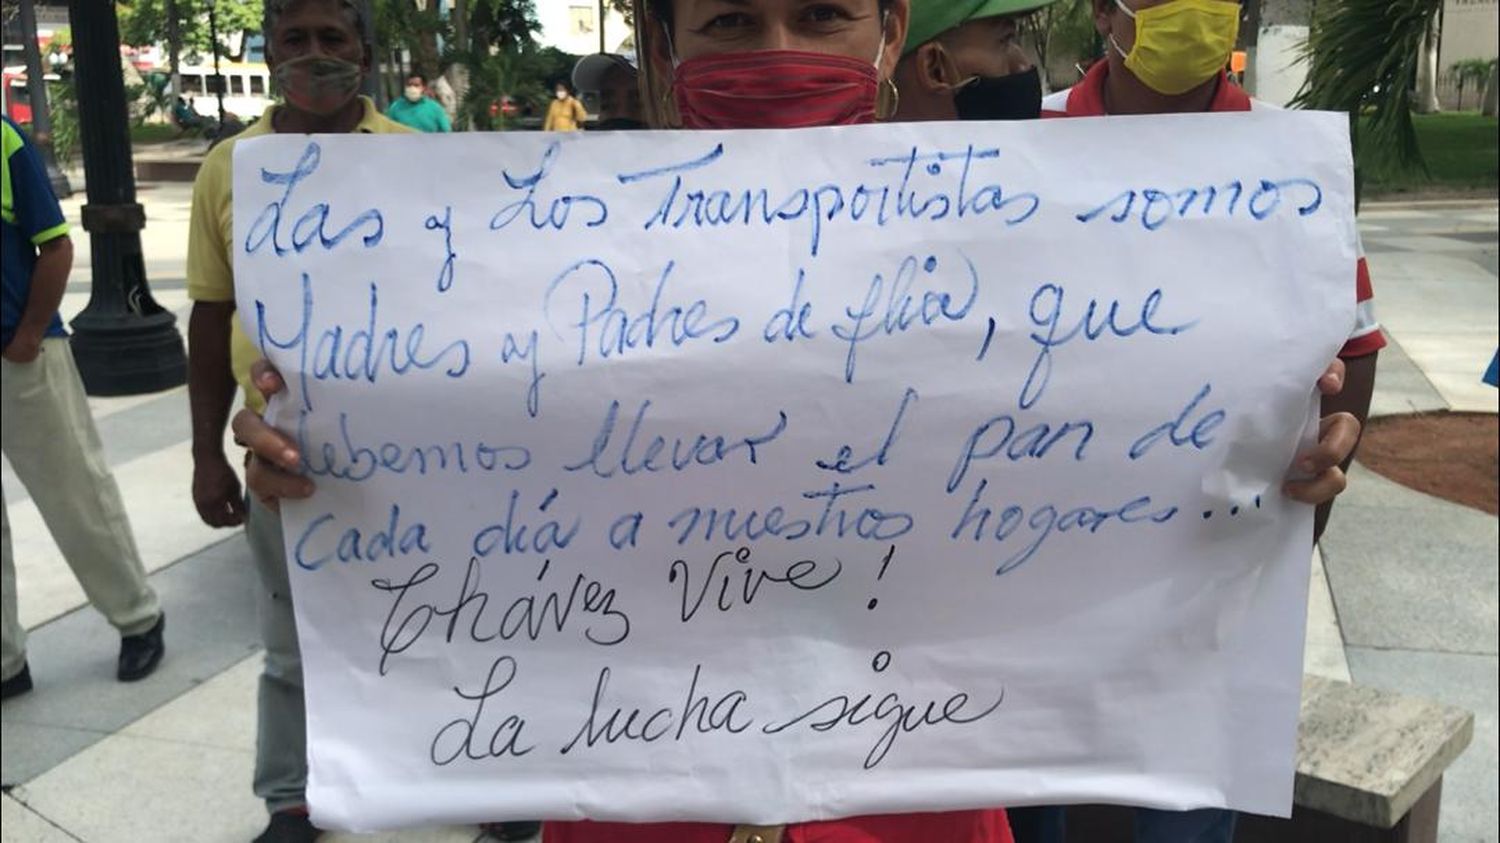 Las y Los Transportistas somos
Madres y Padres de flia, que
debemos llevar el pan de
cada día a nuestros hogares...
Chávez Vive!
La lucha sigue